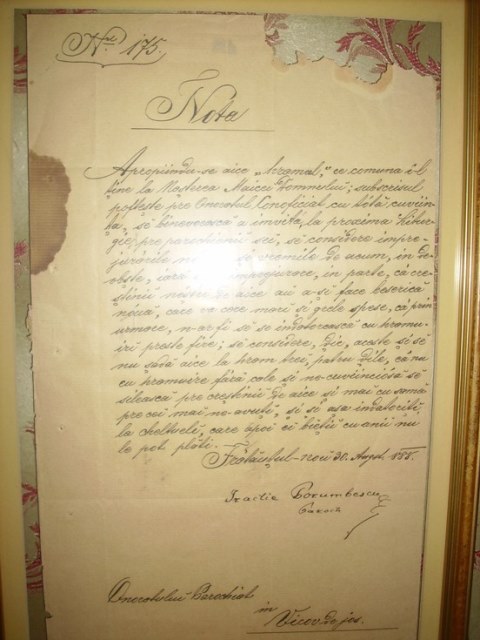 Nr. 175.
Nota
Apropiindu-se aice „hramul,” ce comuna îl
ține la Nașterea Maicei Domnului; subscrisul
poftește pre OnoratulConoficial cu totă cuviin-
ța, să binevoiască a invita, la proxima Litur-
gie, pre parochienii sei, să considere impre-
jurările și vremile de acum, în de-
obște, iară în parte, că cre-
stinii noștri de aice au a-și face beserică
nouă, care va cere mari și grele spese, că prin
urmare, n-ar fi să se îndatorească cu hramu-
iri preste fire; să considere, zic, aceste și să
nu șadă aice la hram trei, patru zile, că nu
cu hramuire fără cale și ne-cuviincioasă să
silească pre creștinii de aice și mai cu samă
pre cei mai ne-avuți, și și așa îndatoriți
la cheltueli, care apoi ei bieții cu anii nu
le pot plăti.
Frătăuțul-nou 30. Aug.
Iraclie Porumbescu
Paroch
Onoratului Parochiat
in
Vicov de jos.